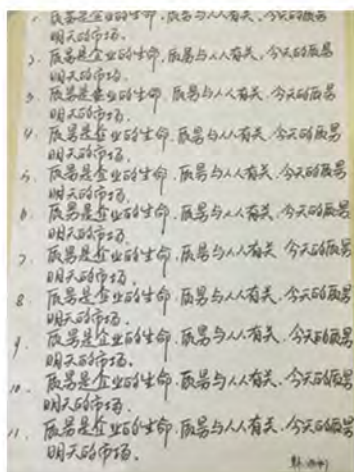 1. 质量是企业的生命,质量与人人有关,今天的质量
明天的市场.
2. 质量是企业的生命,质量与人人有关,今天的质量
明天的市场.
3. 质量是企业的生命,质量与人人有关,今天的质量
明天的市场.
4. 质量是企业的生命,质量与人人有关,今天的质量
明天的市场.
5. 质量是企业的生命,质量与人人有关,今天的质量
明天的市场.
6. 质量是企业的生命,质量与人人有关,今天的质量
明天的市场.
7. 质量是企业的生命,质量与人人有关,今天的质量
明天的市场.
8. 质量是企业的生命,质量与人人有关,今天的质量
明天的市场.
9. 质量是企业的生命,质量与人人有关,今天的质量
明天的市场.
10. 质量是企业的生命,质量与人人有关,今天的质量
明天的市场.
11. 质量是企业的生命,质量与人人有关,今天的质量
明天的市场.